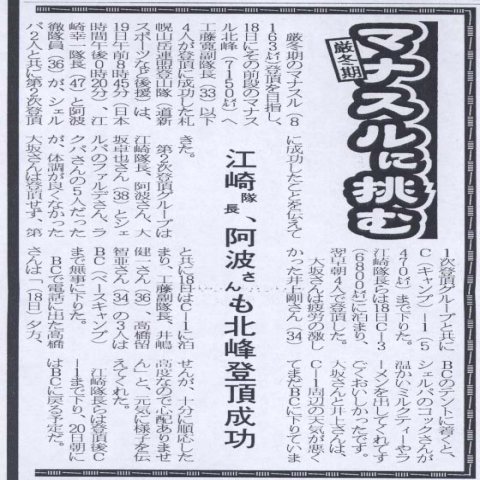 厳冬期
マナスルに挑む
江崎隊長、阿波さんも北峰登頂成功
厳冬期のマナスル(8
163㍍)登頂を目指し、
18日にその前段のマナス
ル北峰(7150㍍)へ
工藤寛副隊長(33)以下
4人が登頂に成功した札
幌山岳連盟登山隊(道新
スポーツなど後援)は、
19日午前8時45分(日本
時間午後0時20分)、江
崎幸一隊長(47)と阿波
徹隊員(36)が、シェル
パ2人と共に第2次登頂
に成功したことを伝えて
きた。
第2次登頂グループは
江崎隊長、阿波さん、大
坂卓也さん(38)とシェ
ルパのファルテさん、ラ
クパさんの5人だった
が、体調が良くなかった
大坂さんは登頂せず、第
1次登頂グループと共に
C(キャンプ)ー1(5
470㍍)まで下りた。
江崎隊長らは18日Cー3
(6800㍍)に泊まり、
翌早朝4人で登頂した。
大坂さんは疲労の激し
かった井上剛さん(34)
と共に18日はCー1に泊
まり、工藤副隊長、井嶋
健一さん(36)、高橋留
智亜さん(34)の3人は
BC(ベースキャンプ)
まで無事に下りた。
BCで電話に出た高橋
さんは「(18日)夕方、
BCのテントに着くと、
シェルパのコックさんが
温かいミルクティーやラ
ーメンを出してくれてす
ごくおいしかったです。
大坂さんと井上さんは、
Cー1周辺の天気が悪く
てまだBCに下りていま
せんが、十分に順応した
高度なので心配ありませ
ん」と、元気に様子を伝
えてくれた。
江崎隊長らは登頂後C
ー1まで下り、20日朝に
はBCに戻る予定だ。